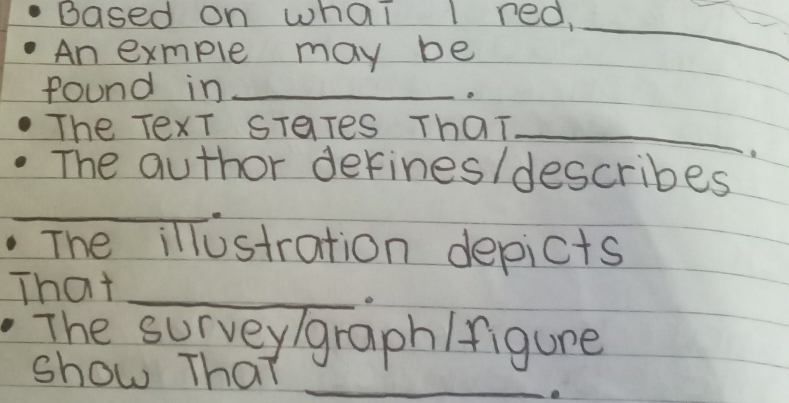 • Based on what I red, ________
• An exmple may be
found in ________.
• The Text states That ________.
• The author defines/describes
________.
• The illustration depicts
That ________.
• The survey/graph/figure
show That ________.